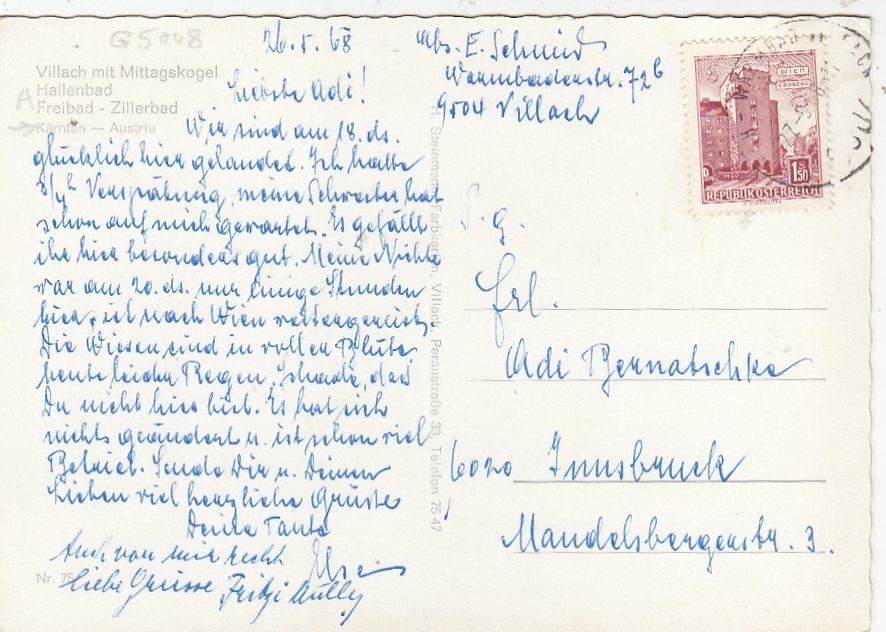 G5008
26.5.68
Villach mit Mittagskogel
Hallenbad
Freibad - Zillerbad
Kärnten — Austria
A
Liebste Adi!
Wir sind am 18. ds.
glücklich hier gelandet. Ich hatte
3/4h Verspätung, meine Schwester hat
schon auf mich gewartet. Es gefällt
ihr hier besonders gut. Meine Nichte
war am 20. ds. nur einige Stunden
hier, ist nach Wien weitergereist.
Die Wiesen sind in voller Blüte
heute leider Regen. Schade, daß
Du nicht hier bist. Es hat sich
nichts geändert u. ist schon viel
Betrieb. Sende Dir u. Deinen
Lieben viel herzliche Grüsse
Deine Tante
Auch von mir recht
liebe Grüsse Fritzi
Nr. 75
H. Steinme Farbkarten, Villach, Peraustraße 33, Telefon 75 47
Abs. E. Schmid
Warmbaderstr. 72b
9504 Villach
WIEN
ERDBERG
1.50
REPUBLIK ÖSTERREICH
S. g.
Frl.
Adi Bernatschke
6020 Innsbruck
Mandelsbergerstr. 3.